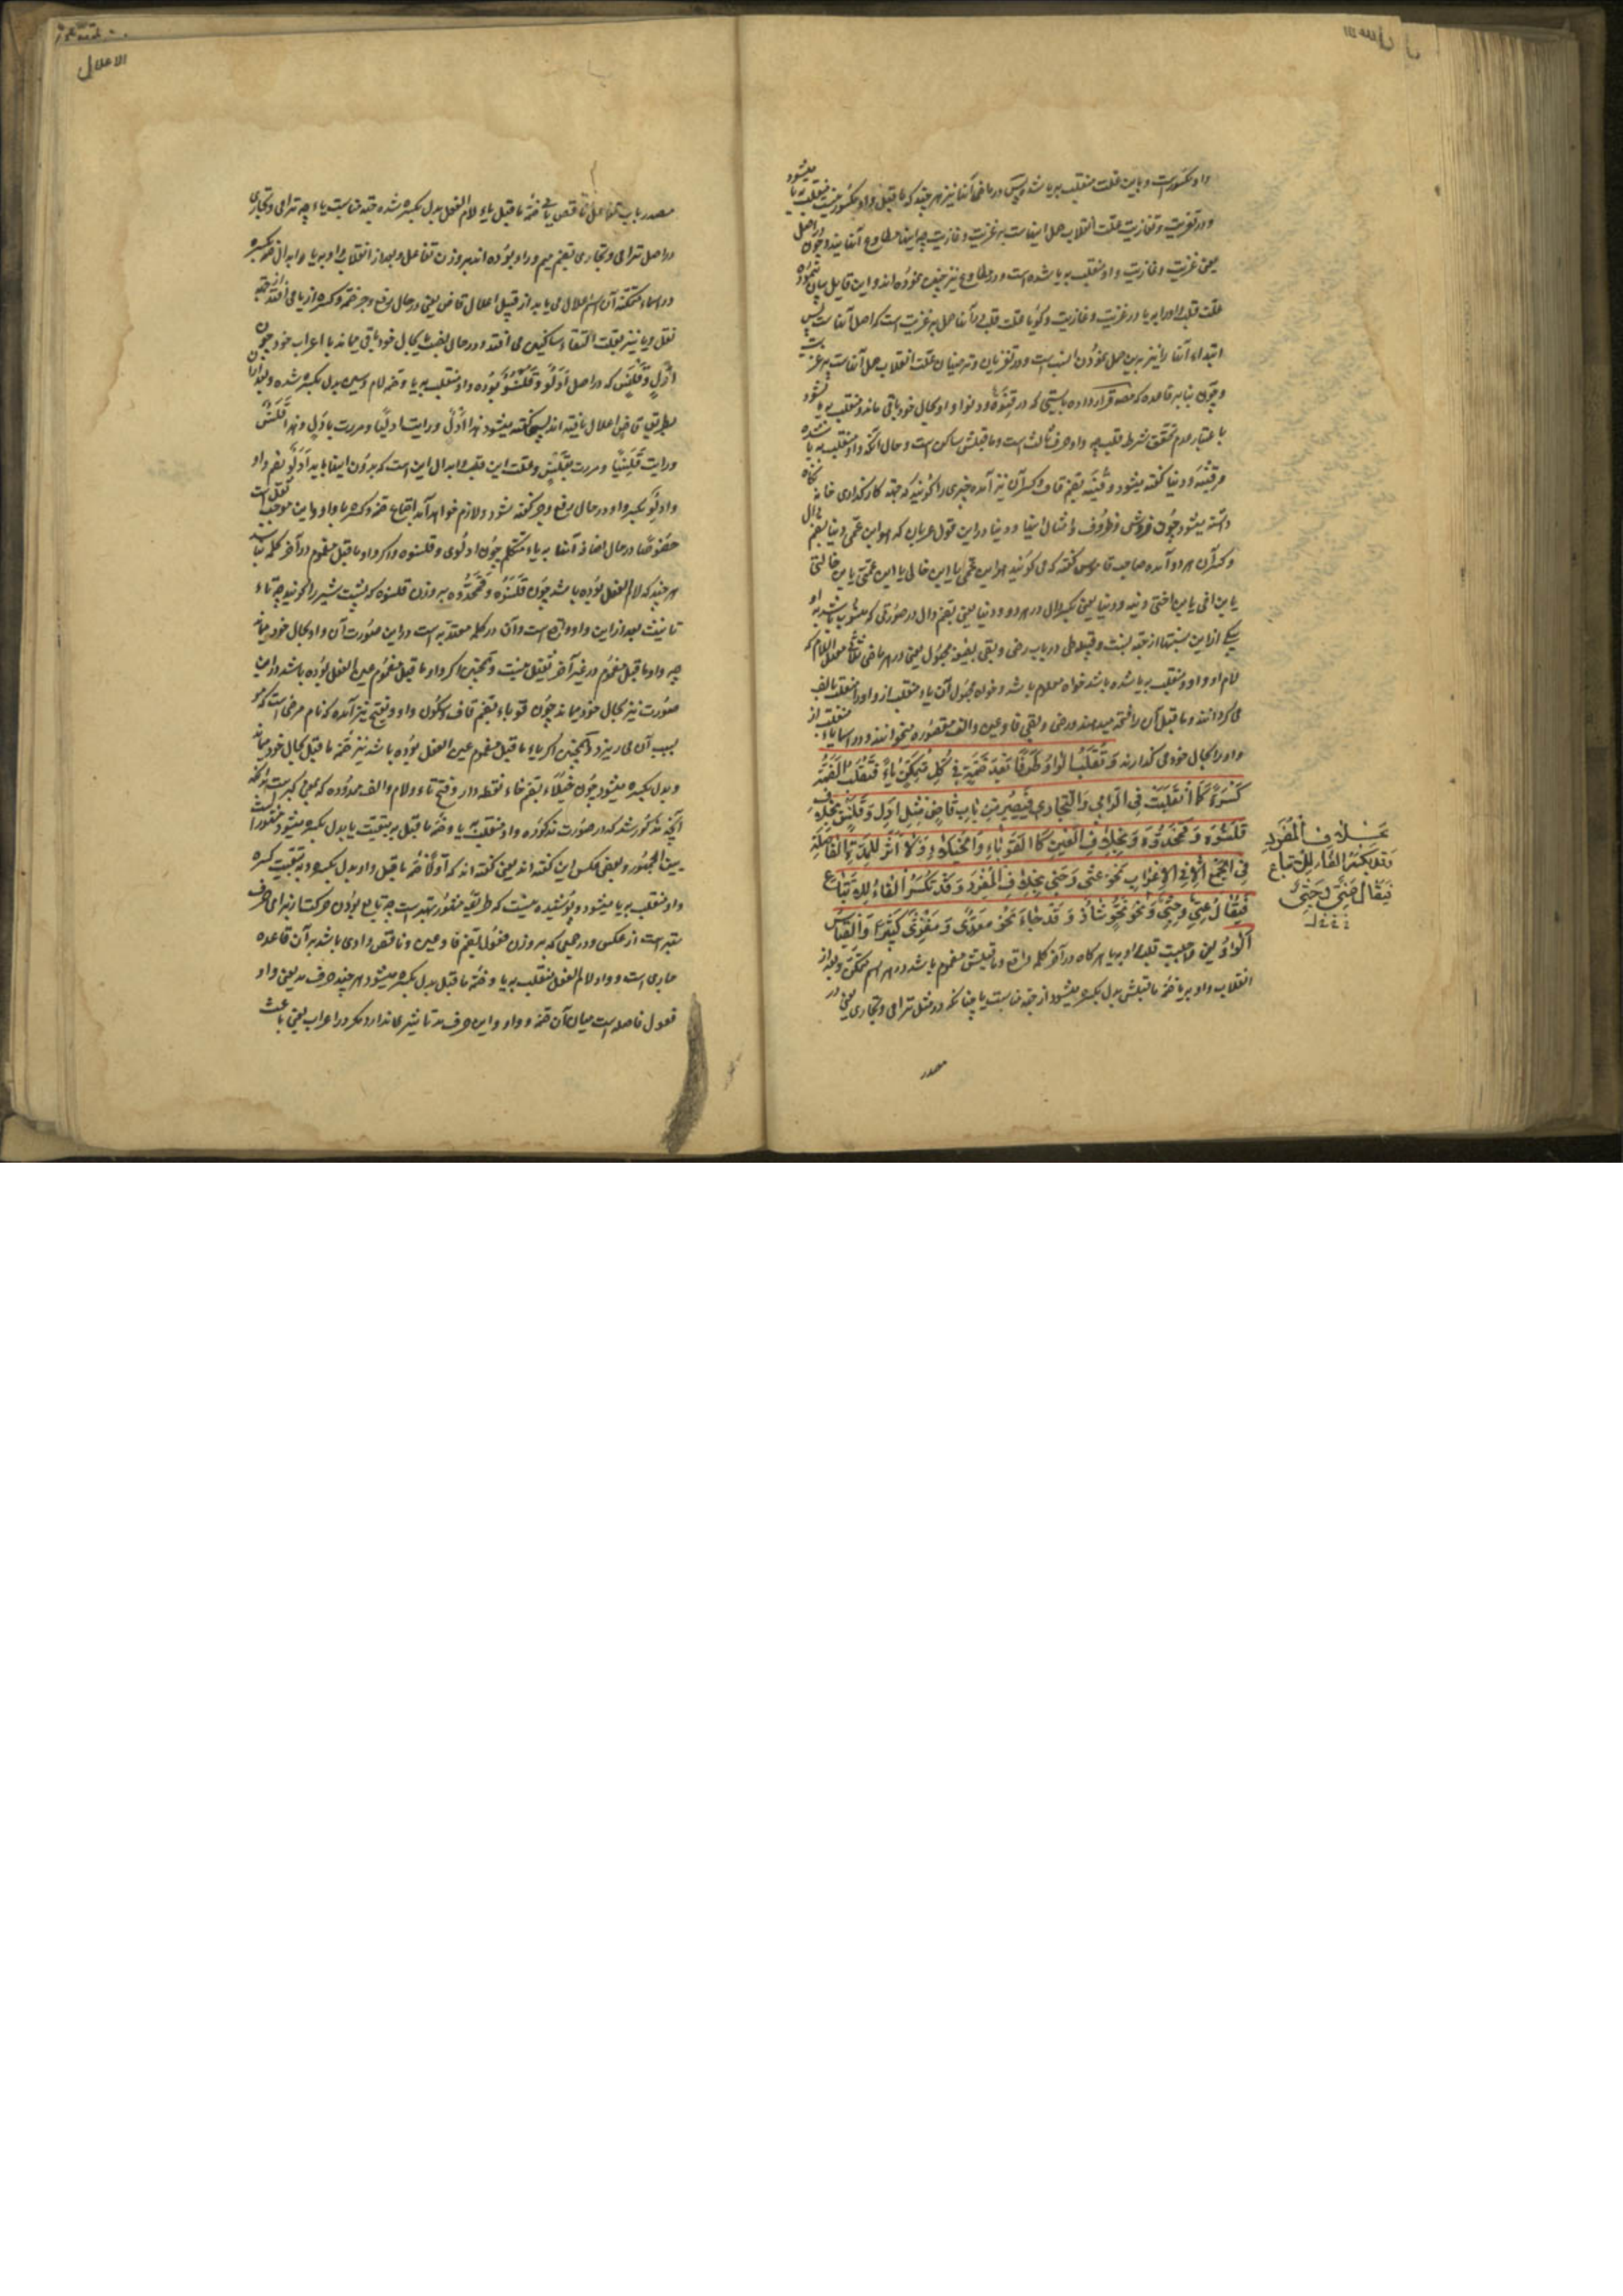 الاعلال
واو مکسور است و باین علت منقلب به یا شد پس در ماضی آنها نیز هر چند که ما قبل واو مکسور نیست منقلب به یا میشود
و در تغزیت و تغازیت علت انقلاب حمل اینها است به غزیت و غازیت چه اینها مطاوع آنهایند و چون در اصل
یعنی غزیت و غازیت واو منقلب به یا شده است و در مطاوع نیز چنین نموده اند و این قایل بیان ننموده
علت قلب واو را به یا در غزیت و غازیت و گویا علت قلب آنها حمل به غزیت است که اصل آنها است پس
ابتداء آنها را نیز برین حمل نمودن انسب است و در تغزیان و ترضیان علت انقلاب حمل آنهاست به غزیت
و چون بنا به قاعده که مصنف قرار داده بایستی که در قنوة و دنوا واو بحال خود باقی ماند و منقلب به یا نشود
با عتبار عدم تحقق شرط قلب چه واو حرف ثالث است و ما قبلش ساکن است و حال آنکه واو منقلب به یا شده
مر قنیه و دنیا گفته میشود و قنیه بضم قاف و کسر آن نیز آمده چیزی را گویند که جهة کارگذاری خانه نگاه
داشته میشود چون فروش و ظروف و امثال اینها و دنیا در این قول عربان که هو ابن عمی دنیا بضم دال
و کسر آن هر دو آمده صاحب قاموس گفته که می گویند هو ابن عمی یا ابن خالی یا ابن عمتی یا بن خالتی
یا بن اخی یا بن اختی دنیه و دنیا یعنی بکسر دال در هر دو و دنیا یعنی بضم دال در صورتی که منسوب باشد به او
بیکی از این نسبتها از جهة نسب و قبیله طی در باب رضی و بقی بصیغه مجهول یعنی در هر ماضی ثلاثی معتل اللام که
لام او واو و منقلب به یا شده باشد خواه معلوم باشد و خواه مجهول آن یاء منقلب از واو را منقلب بالف
می گردانند و ما قبل آن را فتحه میدهند و رضی و بقی فا و عین و الف مقصوره میخوانند و در اسما یاء منقلب از
واو را بحال خود می گذارند و تُقْلَبُ الواوُ طَرَفًا بَعْدَ ضَمَّةٍ فِي كُلِّ مُتَمَكِّنٍ يَاءً فَتُقْلَبُ الضَّمَّةُ
كَسْرَةً كَمَا انْقَلَبَتْ فِي التَّرَامِي وَالتَّجَارِي فَيَصِيرُ مِنْ بَابِ قَاضٍ مِثْلِ أَدْلٍ وَقَلَنْسٍ بِخِلَافِ
قَلَنْسُوَةٍ وَقَمَحْدُوَةٍ وَبِخِلَافِ الْعَيْنِ كَالْقُوَبَاءِ وَالْخُيَلَاءِ وَلَا أَثَرَ لِلْمَدَّةِ الْفَاصِلَةِ
فِي الْجَمْعِ إِلَّا فِي الْإِعْرَابِ نَحْوُ عُتِيٍّ وَجُثِيٍّ بِخِلَافِ الْمُفْرَدِ وَقَدْ تُكْسَرُ الْفَاءُ لِلْإِتْبَاعِ
فَيُقَالُ عِتِيٌّ وَجِثِيٌّ وَنَحْوُ نُحُوٍّ شَاذٌّ وَقَدْ جَاءَ نَحْوُ مَعْدِيٍّ وَمَغْزِيٍّ كَثِيرًا وَالْقِيَاسُ
الْوَاوُ یعنی واجب است قلب واو بیا هر گاه در آخر کلمه واقع و ما قبلش مضموم باشد در هر اسم متمکن و بعد از
انقلاب واو بیا ضمه ما قبلش بدل بکسره میشود از جهة مناسبت یا چنانکه در مثل ترامی و تجاری یعنی در
مصدر
بخلاف المفرد
وقد تکسر الفاء للاتباع
فیقال عتی و جثی
الاعلال
مصدر باب تفاعل ناقص یائی ضمه ما قبل یاء لام الفعل بدل بکسره شده جهة مناسبت یاء چه ترامی و تجاری
در اصل ترامی و تجاری بضم میم و راء بوده اند بر وزن تفاعل و بعد از انقلاب واو به یا و ابدال ضمه بکسره
در اسماء متمکنه آن اسم اعلال می یابد از قبیل اعلال قاض یعنی در حال رفع و جر ضمه و کسره از یا می افتد از جهة
ثقل و یا نیز بعلت التقاء ساکنین می افتد و در حال نصب یا بحال خود باقی میماند با اعراب خود چون
ادل و قلنس که در اصل ادلو و قلنسو بوده واو منقلب به یا و ضمه لام و سین بدل بکسره شده و بعد از آن
بطریق قاض اعلال یافته اند پس گفته میشود هذا ادل و رایت ادلیا و مررت بادل و هذا قلنس
و رایت قلنسیا و مررت بقلنس و علت این قلب و ابدال این است که بدون اینها باید ادلو بضم واو
و ادلو بکسر واو در حال رفع و جر گفته شود و لازم خواهد آمد اجتماع ضمه و کسره با واو و این موجب ثقل است
خصوصا در حال اضافه آنها به یاء متکلم چون ادلوی و قلنسوی و اگر واو ما قبل مضموم در آخر کلمه نباشد
هر چند که لام الفعل بوده باشد چون قلنسوه و قمحدوه بر وزن قلنسوه که پشت سر را گویند چه تاء
تانیث بعد از این واو واقع است و آن در کلمه معتد به است در این صورت آن واو بحال خود میماند
چه واو ما قبل مضموم در غیر آخر ثقیل نیست و همچنین اگر واو ما قبل مضموم عین الفعل بوده باشد در این
صورت نیز بحال خود میماند چون قوباء بضم قاف و سکون واو و بفتح نیز آمده که نام مرضی است که مو
بسبب آن می ریزد و همچنین اگر یاء ما قبل مضموم عین الفعل بوده باشد نیز ضمه ما قبل بحال خود میماند
و بدل بکسره نمیشود چون خیلاء بضم خاء نقطه دار و فتح یاء و لام و الف ممدوده که بمعنی کبر است بدانکه
آنچه مذکور شد که در صورت مذکوره واو منقلب به یا و ضمه ما قبل بتبعیت یا بدل بکسره میشود مشهور است
بین الجمهور و بعضی عکس این گفته اند یعنی گفته اند که اولا ضمه ما قبل واو بدل بکسره و بتبعیت کسره
واو منقلب به یا میشود و پوشیده نیست که طریقه مشهور بهتر است چه تابع بودن حرکت از برای حرف
بهتر است از عکس و در جمعی که بر وزن فعول بضم فا و عین و ناقص واوی باشد به آن قاعده
جاری است و واو لام الفعل منقلب به یا و ضمه ما قبل بدل بکسره میشود هر چند حرف مد یعنی واو
فعول فاصله است میان آن ضمه و واو و این حرف مد تاثیری ندارد مگر در اعراب یعنی باعث